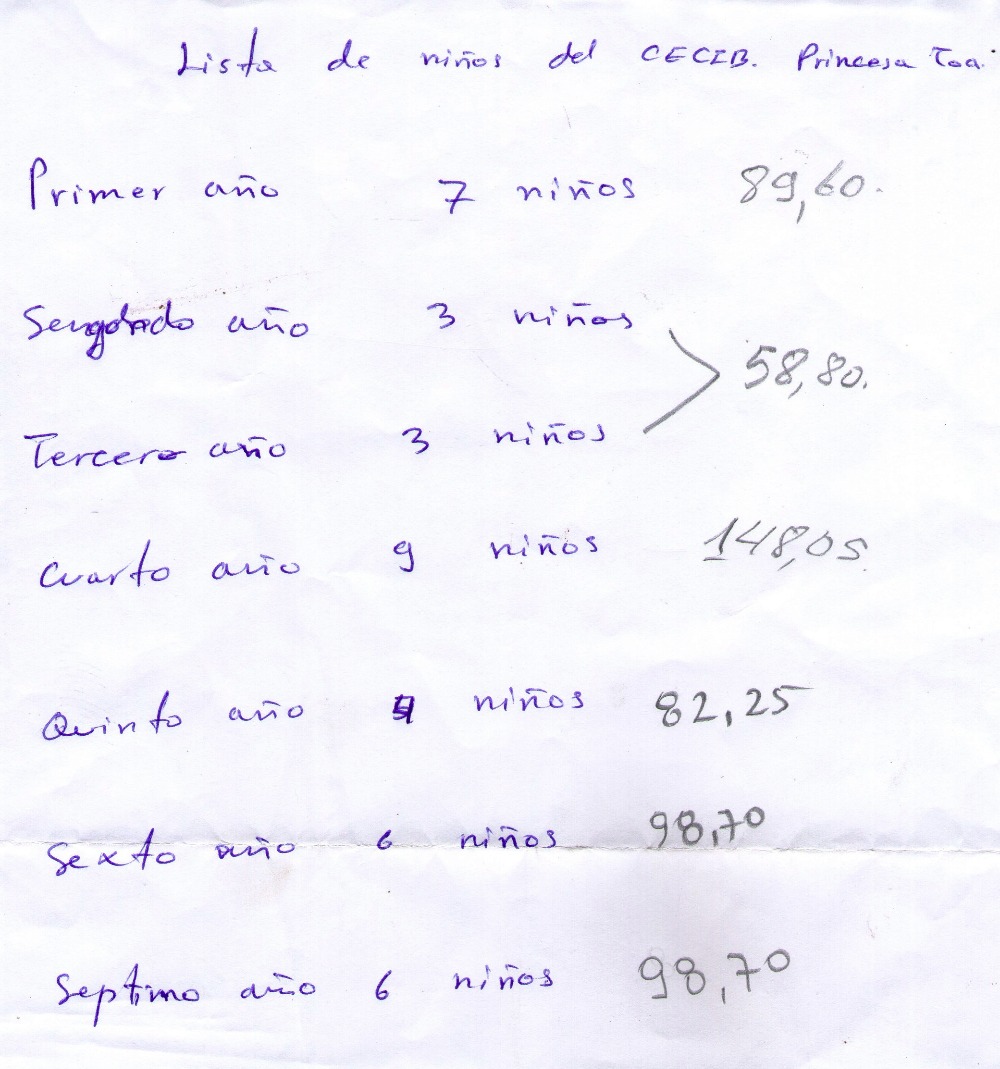 Lista de niños del CECIB. Princesa Toa.
Primer año 7 niños 89,60.
Segundo año 3 niños
58,80.
Tercero año 3 niños
Cuarto año 9 niños 148,05
Quinto año niños 82,25
Sexto año 6 niños 98,70
Septimo año 6 niños 98,70